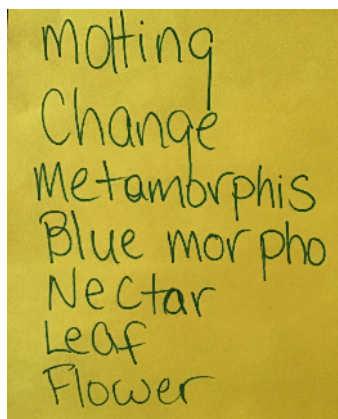 Molting
Change
Metamorphis
Blue morpho
Nectar
Leaf
Flower